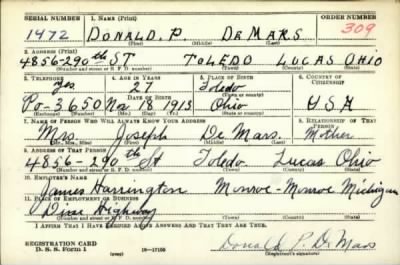 SERIAL NUMBER 1. NAME (Print) ORDER NUMBER
1472 DONALD. P. DeMARS 309
(First) (Middle) (Last)
2. ADDRESS (Print)
4856-290th ST TOLEDO LUCAS OHIO
(Number and street or R. F. D. number) (Town) (County) (State)
3. TELEPHONE 4. AGE IN YEARS 5. PLACE OF BIRTH 6. COUNTRY OF CITIZENSHIP
Yes 27 Toledo
DATE OF BIRTH (Town or county)
Po-3650 Nov 18 1913 Ohio USA
(Exchange) (Number) (Mo.) (Day) (Yr.) (State or country)
7. NAME OF PERSON WHO WILL ALWAYS KNOW YOUR ADDRESS 8. RELATIONSHIP OF THAT PERSON
Mrs. Joseph De Mars. Mother
(Mr., Mrs., Miss) (First) (Middle) (Last)
9. ADDRESS OF THAT PERSON
4856-290th St Toledo Lucas Ohio
(Number and street or R. F. D. number) (Town) (County) (State)
10. EMPLOYER'S NAME
James Harrington Monroe-Monroe Michigan
11. PLACE OF EMPLOYMENT OR BUSINESS
Dixie Highway
(Number and street or R. F. D. number) (Town) (County) (State)
I AFFIRM THAT I HAVE VERIFIED ABOVE ANSWERS AND THAT THEY ARE TRUE.
REGISTRATION CARD
D. S. S. Form 1 (over) 16-17105 Donald P. De Mars
(Registrant's signature)